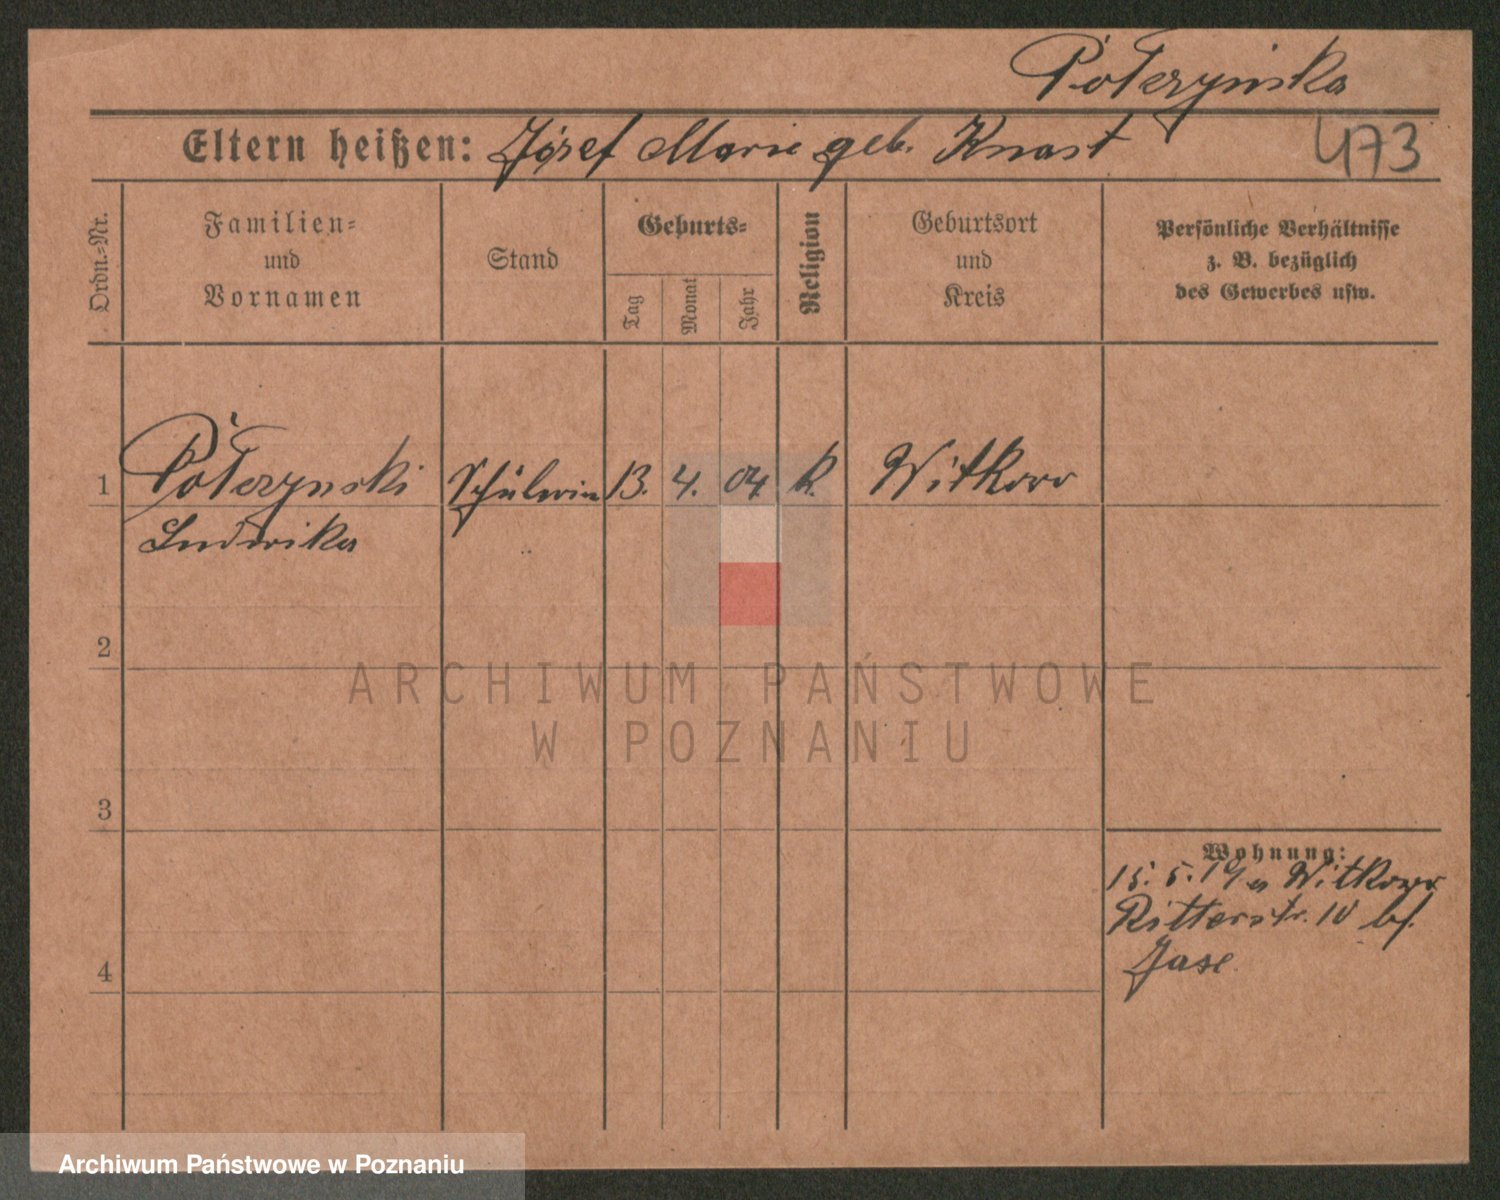 Półczyńska
Eltern heißen: Józef Marie geb. Knast
473
Ordn.-Nr.
Familien-
und
Vornamen
Stand
Geburts-
Tag
Monat
Jahr
Religion
Geburtsort
und
Kreis
Persönliche Verhältnisse
z. B. bezüglich
des Gewerbes usw.
1 Półczynski Schülerin 13. 4. 04 k. Witkowo
Ludwika
2
ARCHIWUM PAŃSTWOWE
W POZNANIU
3
Wohnung:
15. 5. 19 Witkowo
Ritterstr. 10 bf.
Jase
4
Archiwum Państwowe w Poznaniu